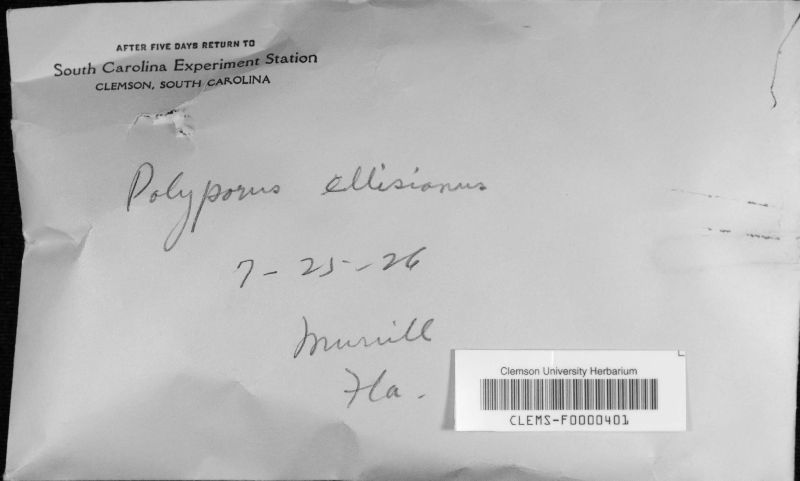 AFTER FIVE DAYS RETURN TO
South Carolina Experiment Station
CLEMSON, SOUTH CAROLINA
Polyporus ellisianus
7-25-26
Murrill
Fla.
Clemson University Herbarium
CLEMS-F0000401